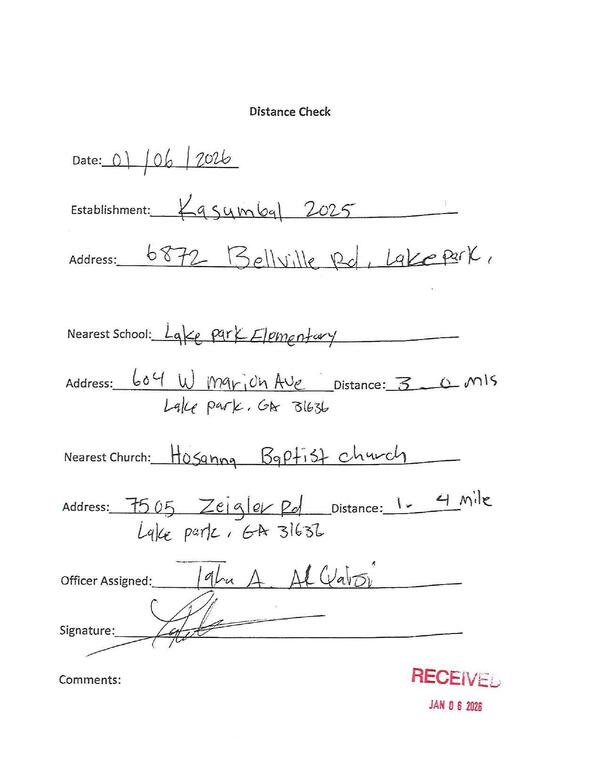 Distance Check
Date: 01/06/2026
Establishment: Kasumbal 2025
Address: 6872 Bellville Rd, Lake park,
Nearest School: Lake park Elementary
Address: 604 W marion Ave Distance: 3.0 mls
Lake park, GA 31636
Nearest Church: Hosanna Baptist church
Address: 7505 Zeigler Rd Distance: 1.4 mile
Lake park, GA 31636
Officer Assigned: Taha A. Al
Signature:
Comments:
RECEIVED
JAN 06 2026